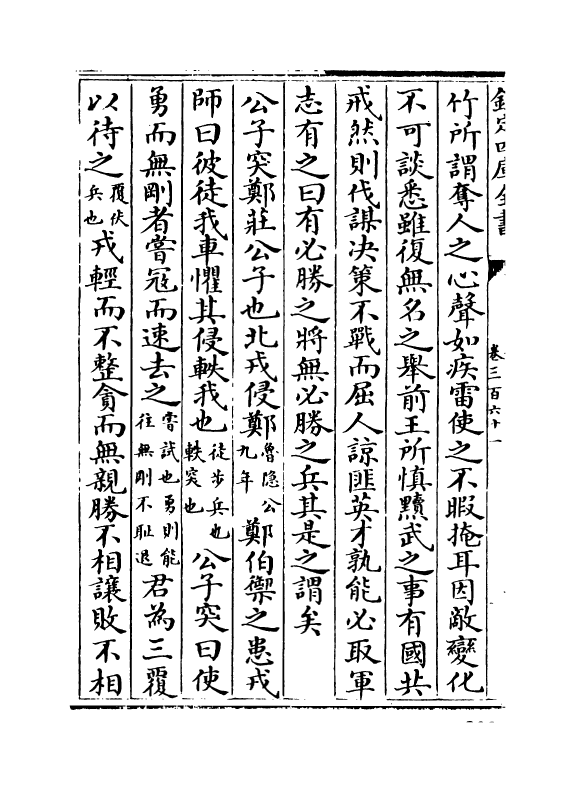 欽定四庫全書
卷三百六十一
竹所謂奪人之心聲如疾雷使之不暇掩耳因敵變化
不可談悉雖復無名之舉前王所慎黷武之事有國共
戒然則伐謀決策不戰而屈人諒匪英才孰能必取軍
志有之曰有必勝之將無必勝之兵其是之謂矣
公子突鄭莊公子也北戎侵鄭魯隱公九年鄭伯禦之患戎
師曰彼徒我車懼其侵軼我也徒步兵也軼突也公子突曰使
勇而無剛者嘗冦而速去之嘗試也勇則能往無剛不恥退君為三覆
以待之覆伏兵也戎輕而不整貪而無親勝不相讓敗不相